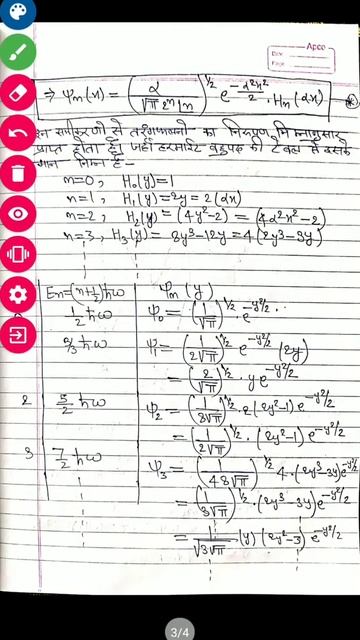 Apco
Date
Page
⇒ Ψn(x) = (α / √π 2ⁿ n!)^1/2 e^-α²x²/2 . Hn(αx)
इन समीकरणो से तरंगफलनो का निरूपण निम्नानुसार
प्राप्त होता है। जहाँ हरमाईट बहुपद की टेबल से इसके
मान निम्न है-
n=0, H₀(y)=1
n=1, H₁(y)=2y = 2(αx)
n=2, H₂(y) = (4y²-2) = (4α²x²-2)
n=3, H₃(y) = 8y³-12y = 4(2y³-3y)
En=(n+½)ħω Ψn(y)
½ħω Ψ₀ = (1/√π)^1/2 . e^-y²/2
3/2 ħω Ψ₁ = (1/2√π)^1/2 e^-y²/2 (2y)
= (2/√π)^1/2 . y e^-y²/2
2 5/2 ħω Ψ₂ = (1/8√π)^1/2 . 2(2y²-1) e^-y²/2
= (1/2√π)^1/2 . (2y²-1) e^-y²/2
3 7/2 ħω Ψ₃ = (1/48√π)^1/2 4.(2y³-3y)e^-y²/2
= (1/3√π)^1/2 . (2y³-3y)e^-y²/2
= 1/√3√π (y) (2y²-3) e^-y²/2
3/4